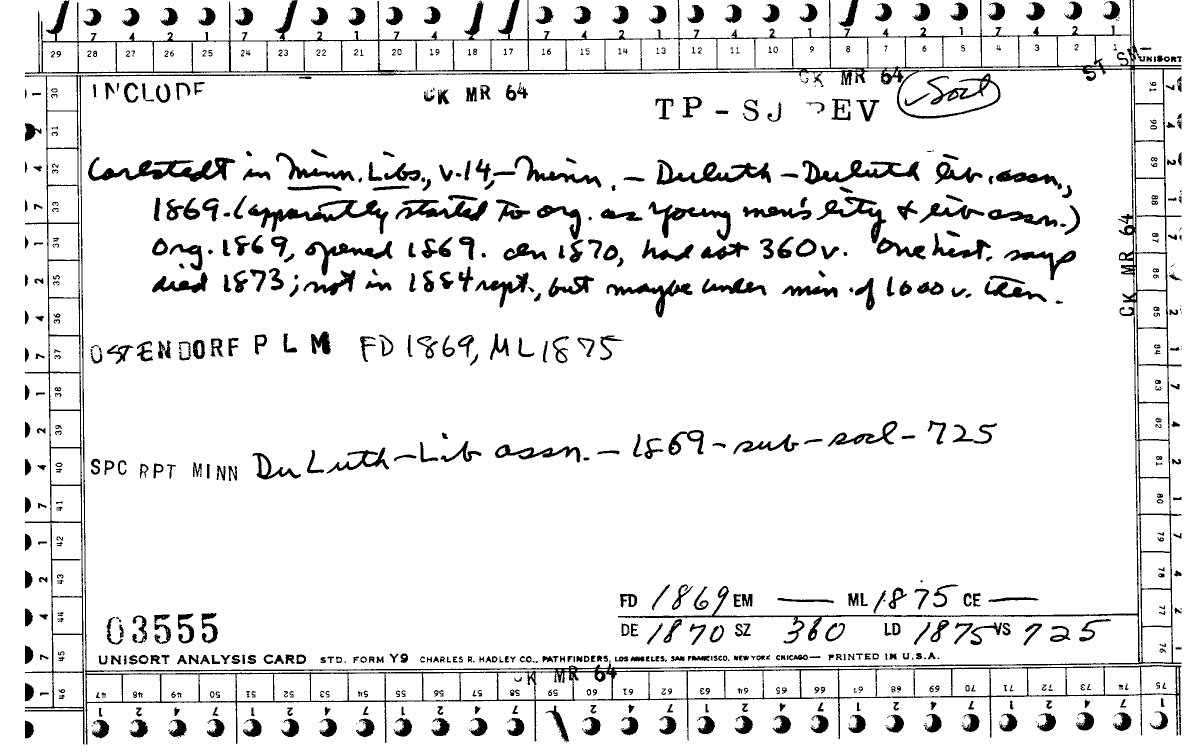 7 4 2 1 7 4 2 1 7 4 2 1 7 4 2 1 7 4 2 1 7 4 2 1 7 4 2 1
29 28 27 26 25 24 23 22 21 20 19 18 17 16 15 14 13 12 11 10 9 8 7 6 5 4 3 2 1
UNISORT
INCLUDE CK MR 64 CK MR 64
TP-SJ REV Socl
Carlstedt in Minn. Libs., v.14,-Minn. - Duluth - Duluth lib. assn.,
1869. (apparently started to org. as Young men's lity & lib assn.)
Org. 1869, opened 1869. An 1870, had abt 360 v. One hist. says
died 1873; not in 1884 rept., but maybe under min. of 1000 v. then.
CK MR 64
OSTENDORF P L M FD 1869, ML 1875
SPC RPT MINN DuLuth-Lib assn.-1869-sub-socl-725
FD 1869 EM — ML 1875 CE —
03555 DE 1870 SZ 360 LD 1875 VS 725
UNISORT ANALYSIS CARD STD. FORM Y9 CHARLES R. HADLEY CO., PATHFINDERS, LOS ANGELES, SAN FRANCISCO, NEW YORK CHICAGO— PRINTED IN U.S.A.
CK MR 64
30 31 32 33 34 35 36 37 38 39 40 41 42 43 44 45 46
47 48 49 50 51 52 53 54 55 56 57 58 59 60 61 62 63 64 65 66 67 68 69 70 71 72 73 74 75
91 90 89 88 87 86 85 84 83 82 81 80 79 78 77 76